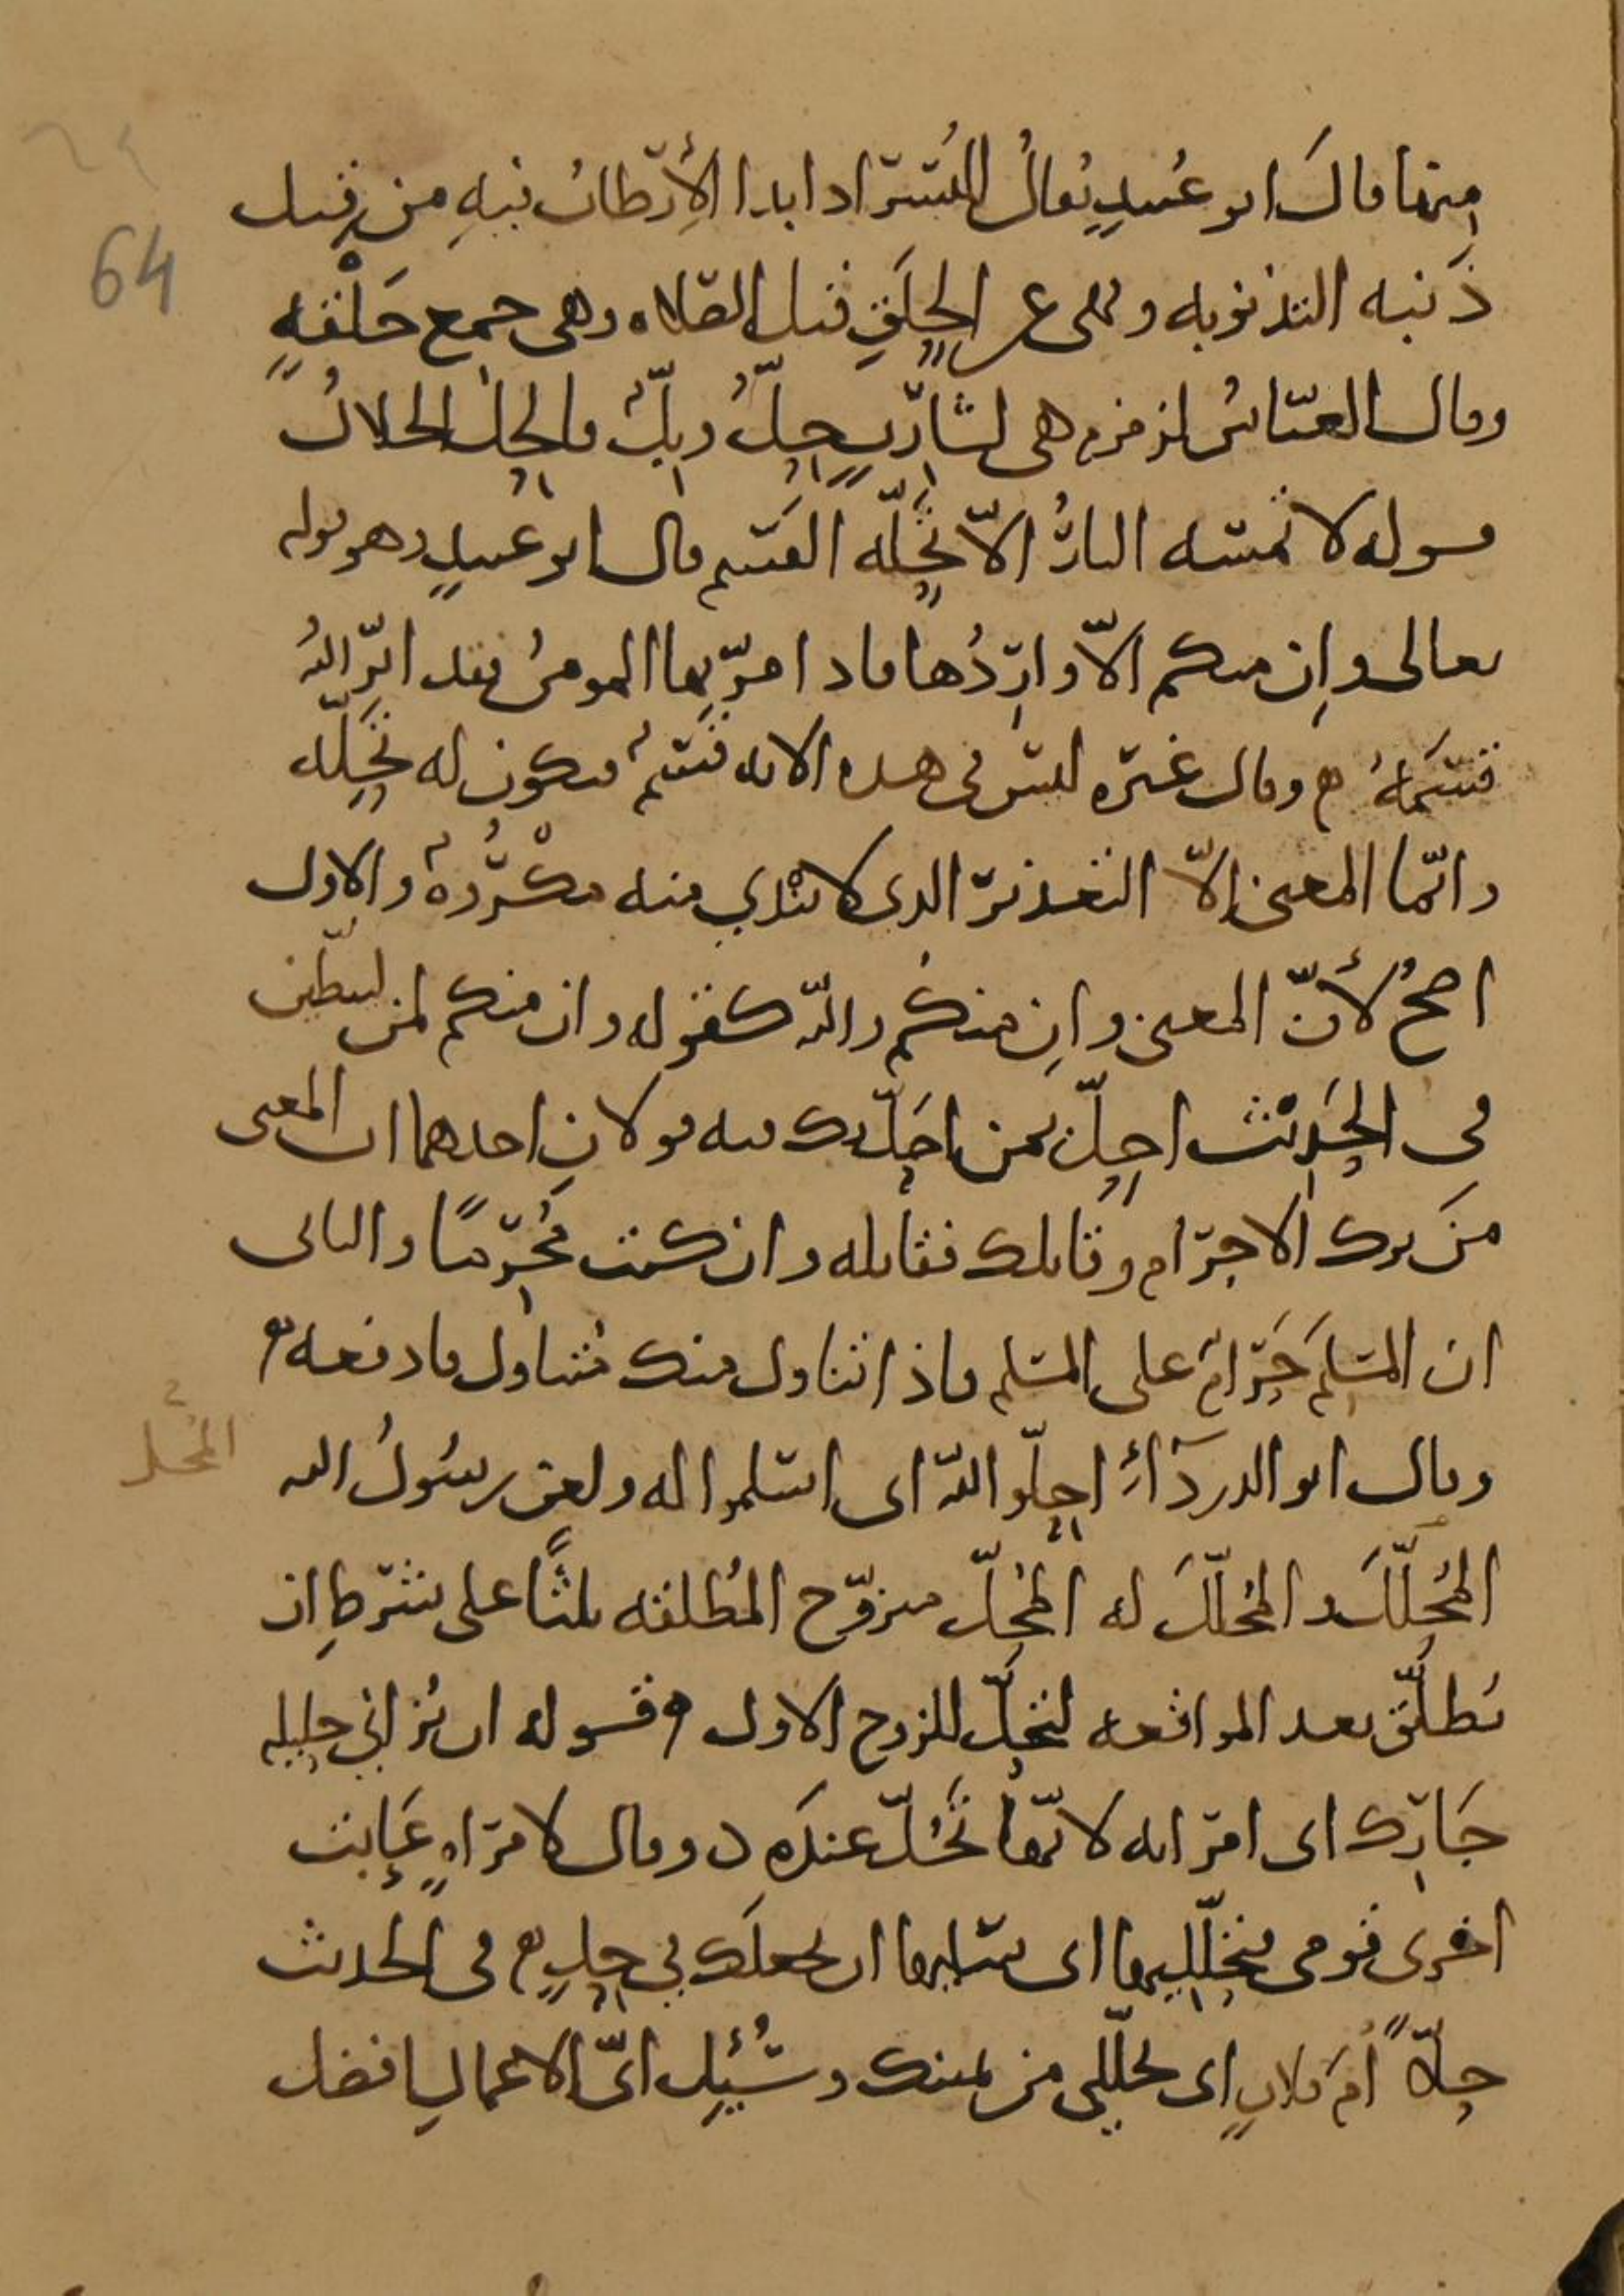 منها قال ابو عُبيدٍ يُقالُ للبُسْرِ اذا بدا الأرطابُ فيهِ من قِبَلِ
ذَنَبه التذنوبه ونهى عن الحِلَقِ قبل الصّلاه وهى جمع حَلْقهٍ
وقال العبّاسُ لزمزم هى لشارِبٍ حِلٌّ وبِلٌّ فالحِلُّ الحلالُ
قوله لا تمسّه النارُ الّا تحِلّة القَسَم قال ابو عبيدٍ وهو قوله
تعالى وان منكم الّا وارِدُها فاذا مرّ بها المومنُ فقد ابرّ اللهُ
قَسَمَهُ وقال غيره ليس فى هذه الايه قَسَمٌ فيكون له تَحِلّه
وانّما المعنى الّا التعذير الذى لا يَنْدي منه مكْرُوهٌ والاول
اصحُّ لأنّ المعنى وان منكم والله كقوله وان منكم لمن ليبطّئن
فى الحَدِيْث احِلّ بمن احَلّ بك فيه قولان احدهما ان المعنى
مَن ترك الاحرام وقاتلك فقاتله وان كنت مُحرِمًا والثانى
ان المسلمَ حَرَامٌ على المسلم فاذا تناول منك فتناول ما دفعه
وقال ابو الدردآءِ احِلّوا اللهَ اى اسلموا له ولعن رسُولُ الله
المُحِلّلَ والمُحلّلَ له المُحِلّ متزوّج المُطلقه ثلثًا على شرطِ ان
يُطلّق بعد المواقعه لتحِلّ للزوج الاول وقوله ان تُزاني حليله
جَارِك اى امراته لانّها تَحُلّ عنده وقال لامراهٍ عَابت
اخرى قومى فتحلّليها اى سليها ان تجعلك في حِلٍّ فى الحديث
حِلّاً أمّ فلانٍ اى تحلّلى من يمينك وسُئِلَ ايّ الاعمالِ افضل
64
المُحلّ